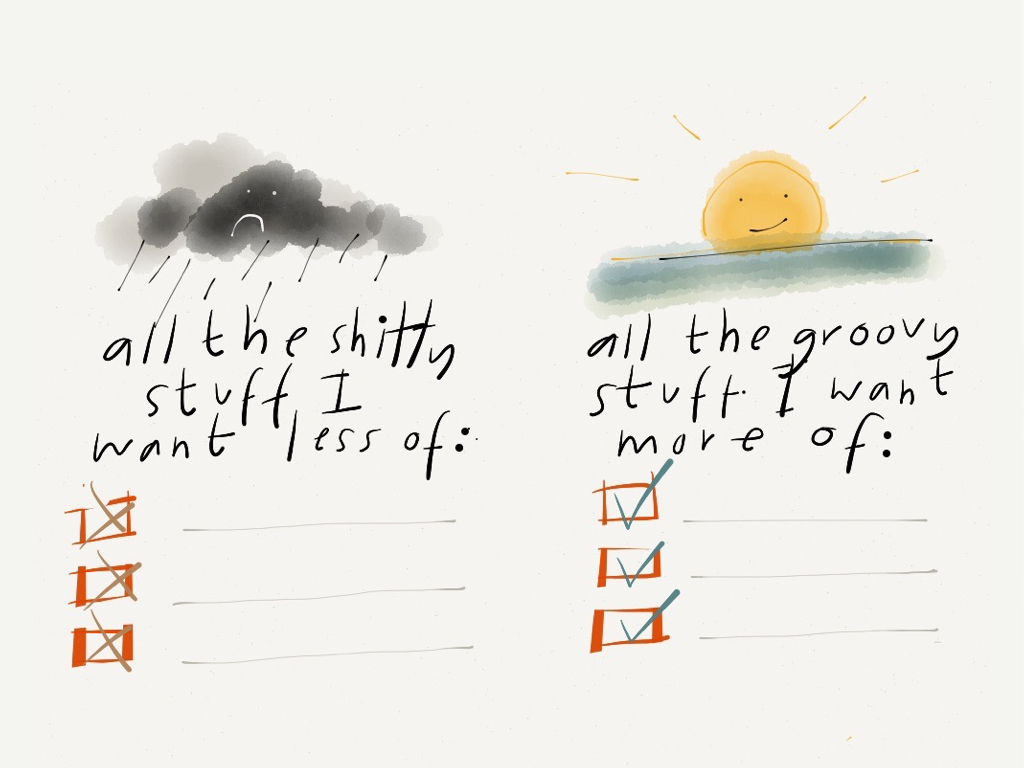 all the shitty
stuff I
want less of:
all the groovy
stuff. I want
more of: